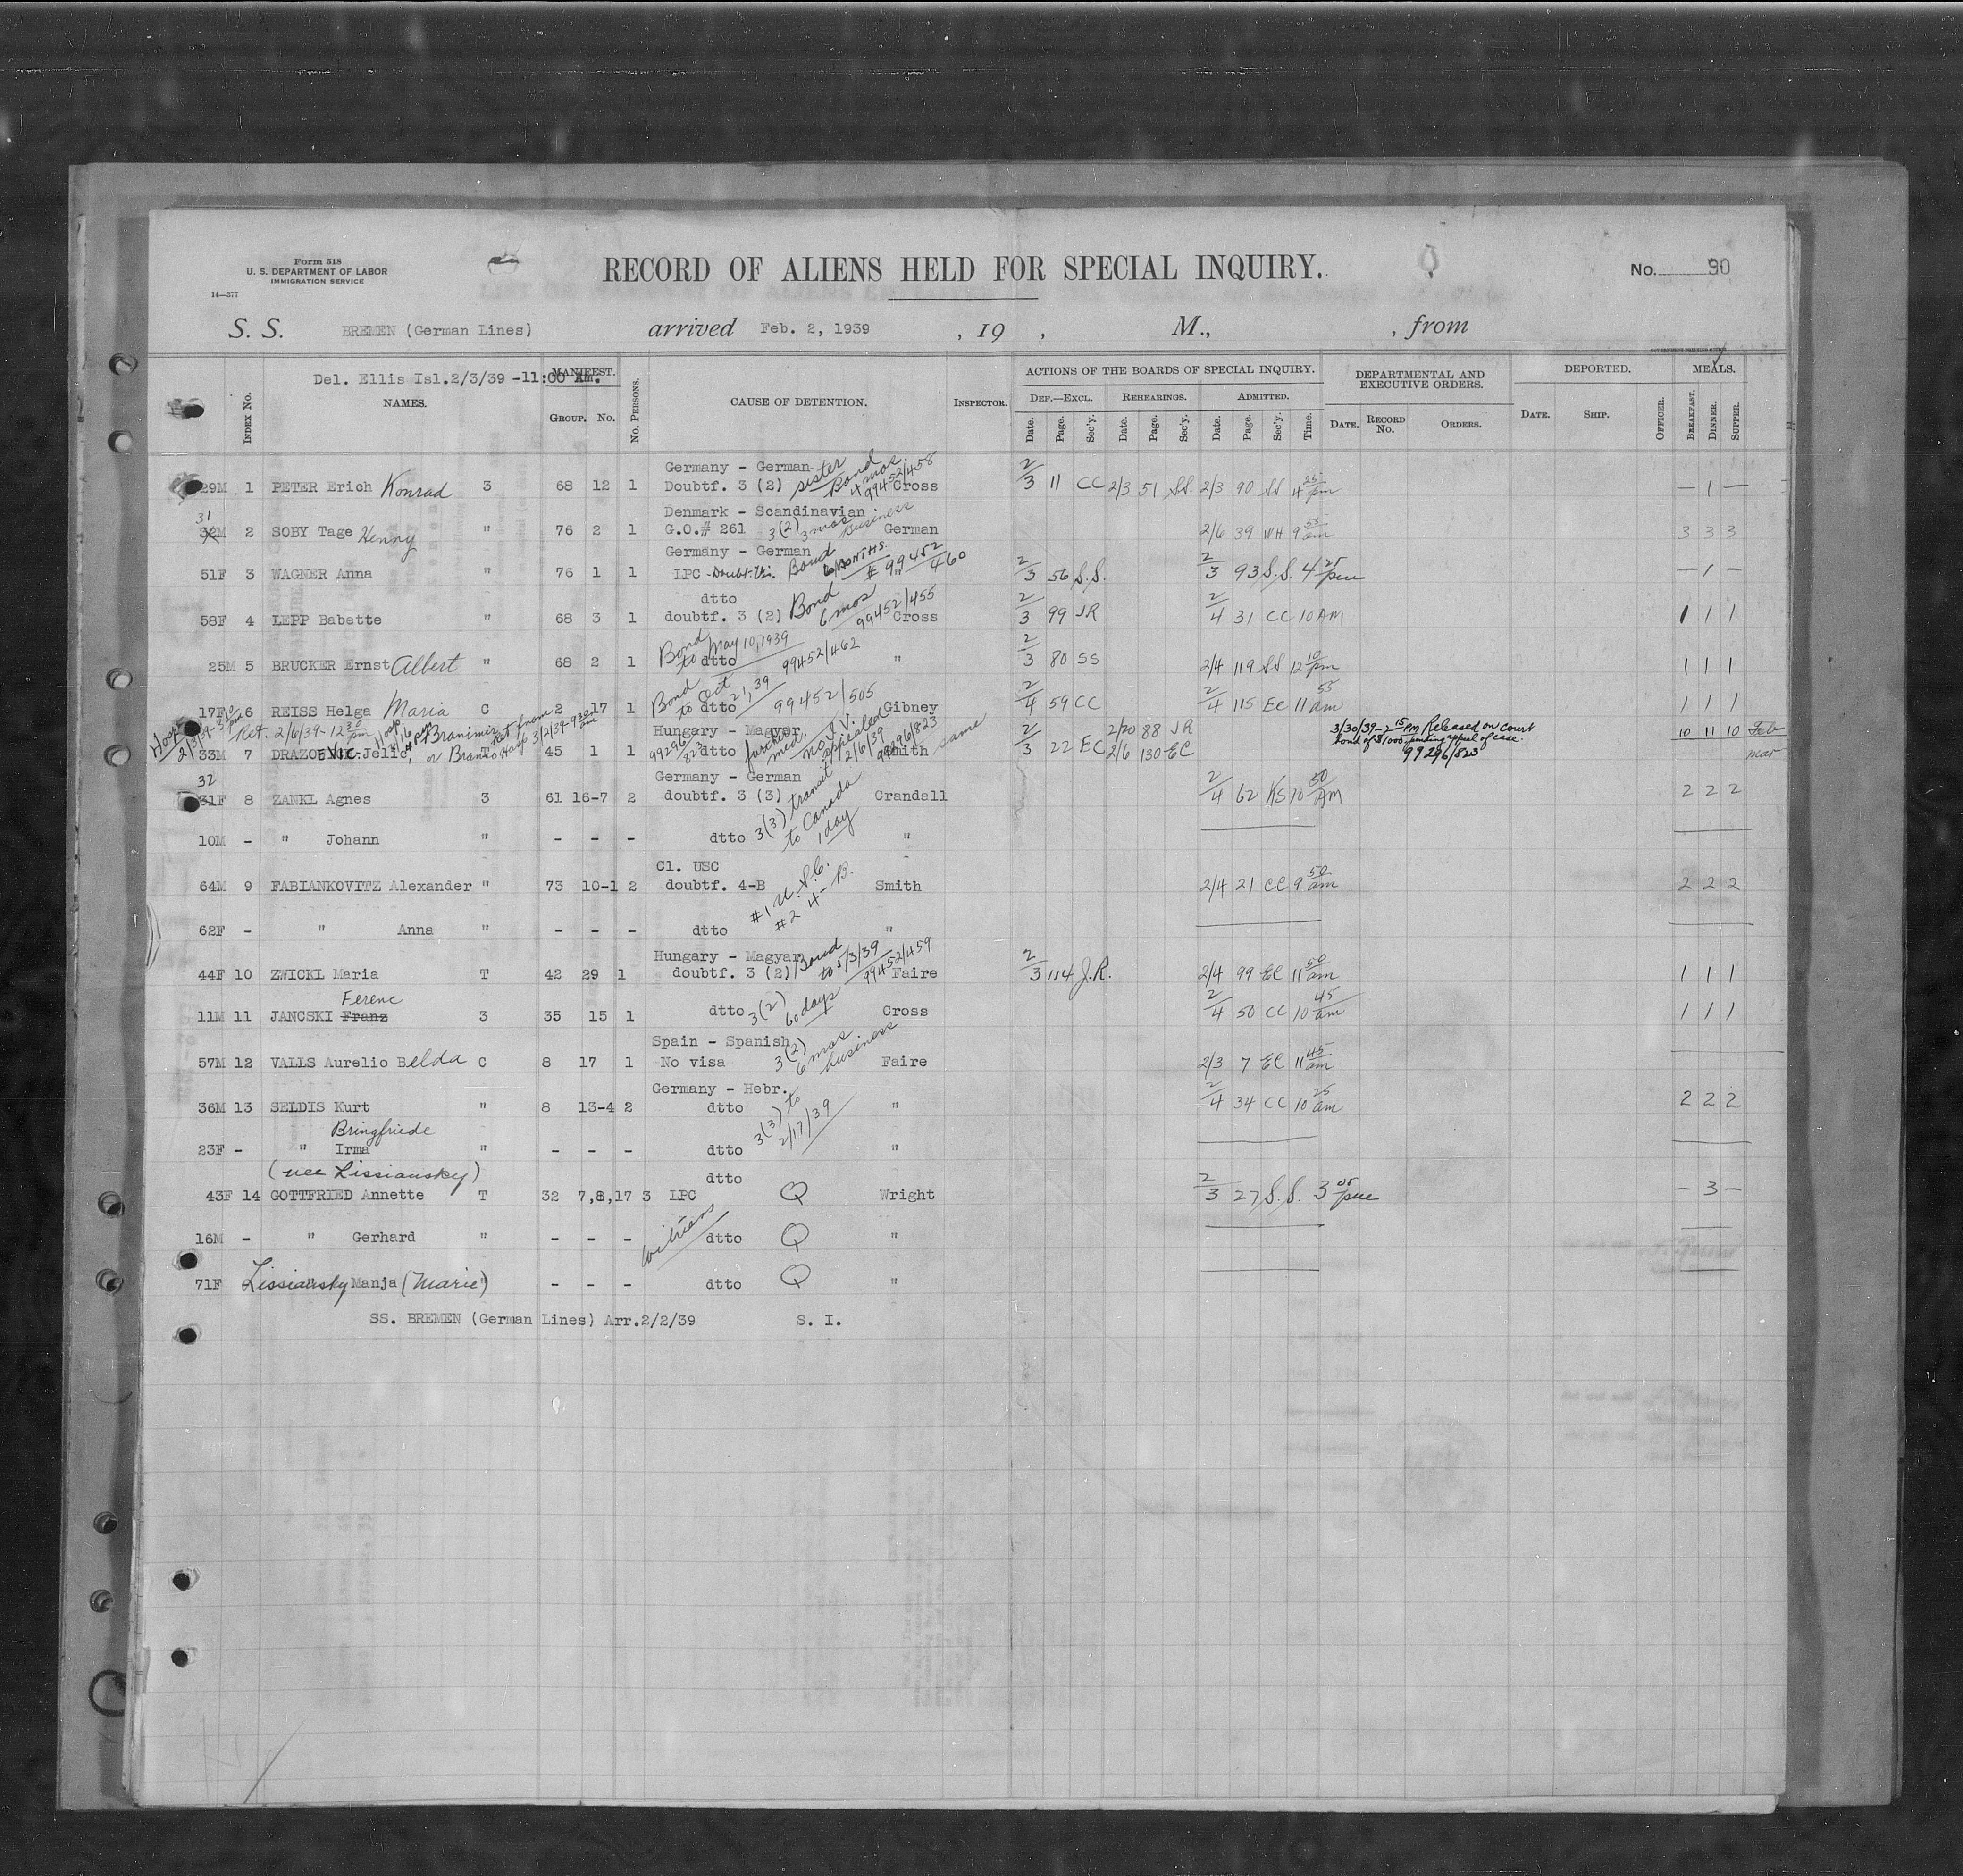 Form 518
U. S. DEPARTMENT OF LABOR
IMMIGRATION SERVICE
14—377
RECORD OF ALIENS HELD FOR SPECIAL INQUIRY.
No. 90
S. S. BREMEN (German Lines) arrived Feb. 2, 1939 , 19 , M., , from
Del. Ellis Isl. 2/3/39 -11:00 Am.
INDEX NO. NAMES. MANIFEST. GROUP. NO. NO. PERSONS. CAUSE OF DETENTION. INSPECTOR. ACTIONS OF THE BOARDS OF SPECIAL INQUIRY. DEPARTMENTAL AND EXECUTIVE ORDERS. DEPORTED. MEALS.
DEF.—EXCL. REHEARINGS. ADMITTED.
Date. Page. Sec'y. Date. Page. Sec'y. Date. Page. Sec'y. Time. DATE. RECORD NO. ORDERS. DATE. SHIP. OFFICER. BREAKFAST. DINNER. SUPPER.
Germany - German sister Bond 4 mos. 99452/458
29M 1 PETER Erich Konrad 3 68 12 1 Doubtf. 3 (2) Cross 2/3 11 CC 2/3 51 SS. 2/3 90 SS 4 25 pm — 1 —
Denmark - Scandinavian
31
32M 2 SOBY Tage Henny " 76 2 1 G.O.# 261 3(2) 3 mos business German 2/6 39 WH 9 55 am 3 3 3
Germany - German Bond 6 MONTHS. # 99452/460
51F 3 WAGNER Anna " 76 1 1 LPC " 2/3 56 S.S. 2/3 93 S.S. 4 25 pm — 1 —
dtto Bond 6 mos 99452/455
58F 4 LEPP Babette " 68 3 1 doubtf. 3 (2) Cross 2/3 99 JR 2/4 31 CC 10 AM 1 1 1
Bond to May 10, 1939 99452/462
25M 5 BRUCKER Ernst Albert " 68 2 1 dtto " 2/3 80 SS 2/4 119 SS 12 10 pm 1 1 1
Bond to Oct 21, 39 99452/505
17F 6 REISS Helga Maria C 2 17 1 dtto Gibney 2/4 59 CC 2/4 115 EC 11 55 am 1 1 1
Hosp 2/3/39 - 3 10 pm Ret. 2/6/39 - 12 30 pm Braninir or Branko Ret from Hosp 3/2/39 - 9 30 am
Hungary - Magyar 99296/823 further med. no I.V. appealed 2/6/39 99296/823 same
33M 7 DRAZOEVIC Jello, T 45 1 1 dtto Smith 2/3 22 EC 2/20 88 JR 2/6 130 EC 10 11 10 Feb
mar
3/30/39 - 2 15 PM Released on court
bond of $1000 pending appeal of case.
99296/823
32
Germany - German
31F 8 ZANKL Agnes 3 61 16-7 2 doubtf. 3 (3) Crandall 2/4 62 KS 10 50 AM 2 2 2
10M - " Johann " - - - dtto 3(3) transit to Canada 1 day "
Cl. USC
64M 9 FABIANKOVITZ Alexander " 73 10-1 2 doubtf. 4-B #1 U.S.C. #2 4-B. Smith 2/4 21 CC 9 50 am 2 2 2
62F - " Anna " - - - dtto "
Hungary - Magyar Bond to 5/3/39 99452/459
44F 10 ZWICKL Maria T 42 29 1 doubtf. 3 (2) Faire 2/3 114 J.R. 2/4 99 EC 11 50 am 1 1 1
Ferenc
11M 11 JANCSKI Franz 3 35 15 1 dtto 3(2) 60 days Cross 2/4 50 CC 10 45 am 1 1 1
Spain - Spanish
57M 12 VALLS Aurelio Belda C 8 17 1 No visa 3(2) 6 mos business Faire 2/3 7 EC 11 45 am
Germany - Hebr.
36M 13 SELDIS Kurt " 8 13-4 2 dtto 3(3) to 2/17/39 " 2/4 34 CC 10 25 am 2 2 2
Bringfriede
23F - " Irma " - - - dtto "
(nee Lissiansky) dtto
43F 14 GOTTFRIED Annette T 32 7,8,17 3 LPC Q Wright 2/3 27 S.S. 3 05 pm — 3 —
16M - " Gerhard " - - - dtto Q "
71F Lissiansky Manja (Marie) - - - dtto Q "
SS. BREMEN (German Lines) Arr.2/2/39 S. I.